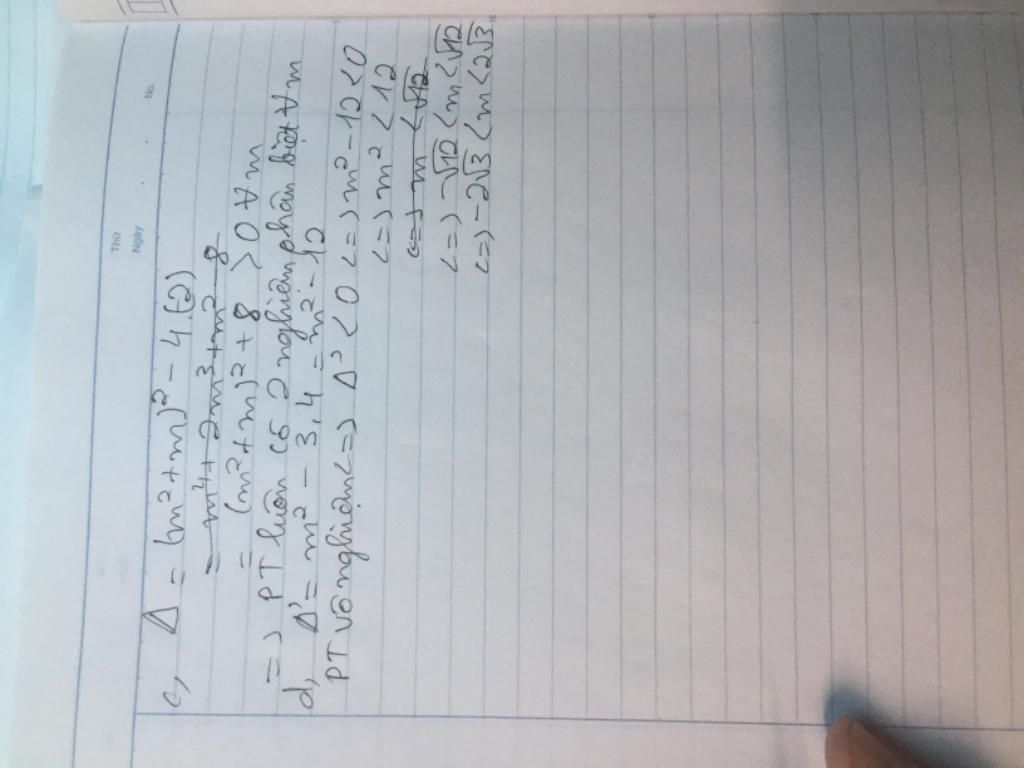 Thứ
Ngày
No.
c, Δ = (m²+m)² - 4.(-2)
= m⁴ + 2m³ + m² - 8
= (m²+m)² + 8 > 0 ∀m
=> PT luôn có 2 nghiệm phân biệt ∀m
d, Δ' = m² - 3.4 = m² - 12
PT vô nghiệm <=> Δ' < 0 <=> m² - 12 < 0
<=> m² < 12
<=> m < √12
<=> -√12 < m < √12
<=> -2√3 < m < 2√3